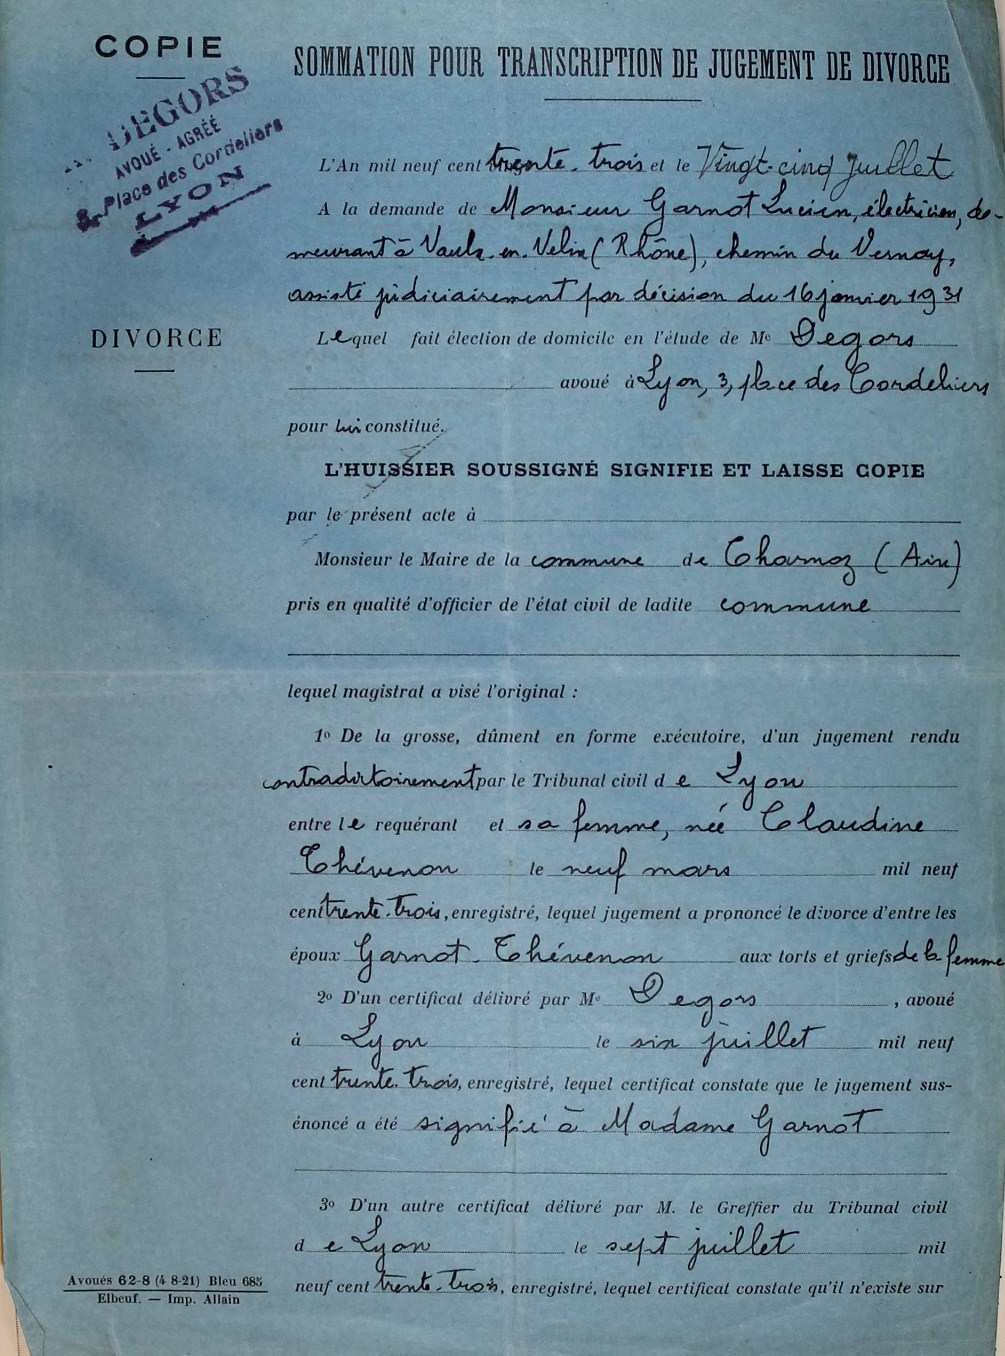 COPIE
DEGORS
AVOUÉ - AGRÉÉ
3, Place des Cordeliers
LYON
DIVORCE
SOMMATION POUR TRANSCRIPTION DE JUGEMENT DE DIVORCE
L'An mil neuf cent trente-trois et le Vingt-cinq Juillet
A la demande de Monsieur Garnot Lucien, électricien, de-
meurant à Vaulx-en-Velin (Rhône), chemin du Vernay,
assisté judiciairement par décision du 16 janvier 1931
Lequel fait élection de domicile en l'étude de Me Degors
avoué à Lyon, 3, place des Cordeliers
pour lui constitué.
L'HUISSIER SOUSSIGNÉ SIGNIFIE ET LAISSE COPIE
par le présent acte à
Monsieur le Maire de la commune de Charnoz (Ain)
pris en qualité d'officier de l'état civil de ladite commune
lequel magistrat a visé l'original :
1o De la grosse, dûment en forme exécutoire, d'un jugement rendu
contradictoirement par le Tribunal civil de Lyon
entre le requérant et sa femme, née Claudine
Thévenon le neuf mars mil neuf
cent trente-trois, enregistré, lequel jugement a prononcé le divorce d'entre les
époux Garnot-Thévenon aux torts et griefs de la femme
2o D'un certificat délivré par Me Degors, avoué
à Lyon le six juillet mil neuf
cent trente-trois, enregistré, lequel certificat constate que le jugement sus-
énoncé a été signifié à Madame Garnot
3o D'un autre certificat délivré par M. le Greffier du Tribunal civil
de Lyon le sept juillet mil
neuf cent trente-trois, enregistré, lequel certificat constate qu'il n'existe sur
Avoués 62-8 (4 8-21) Bleu 685
Elbeuf. — Imp. Allain